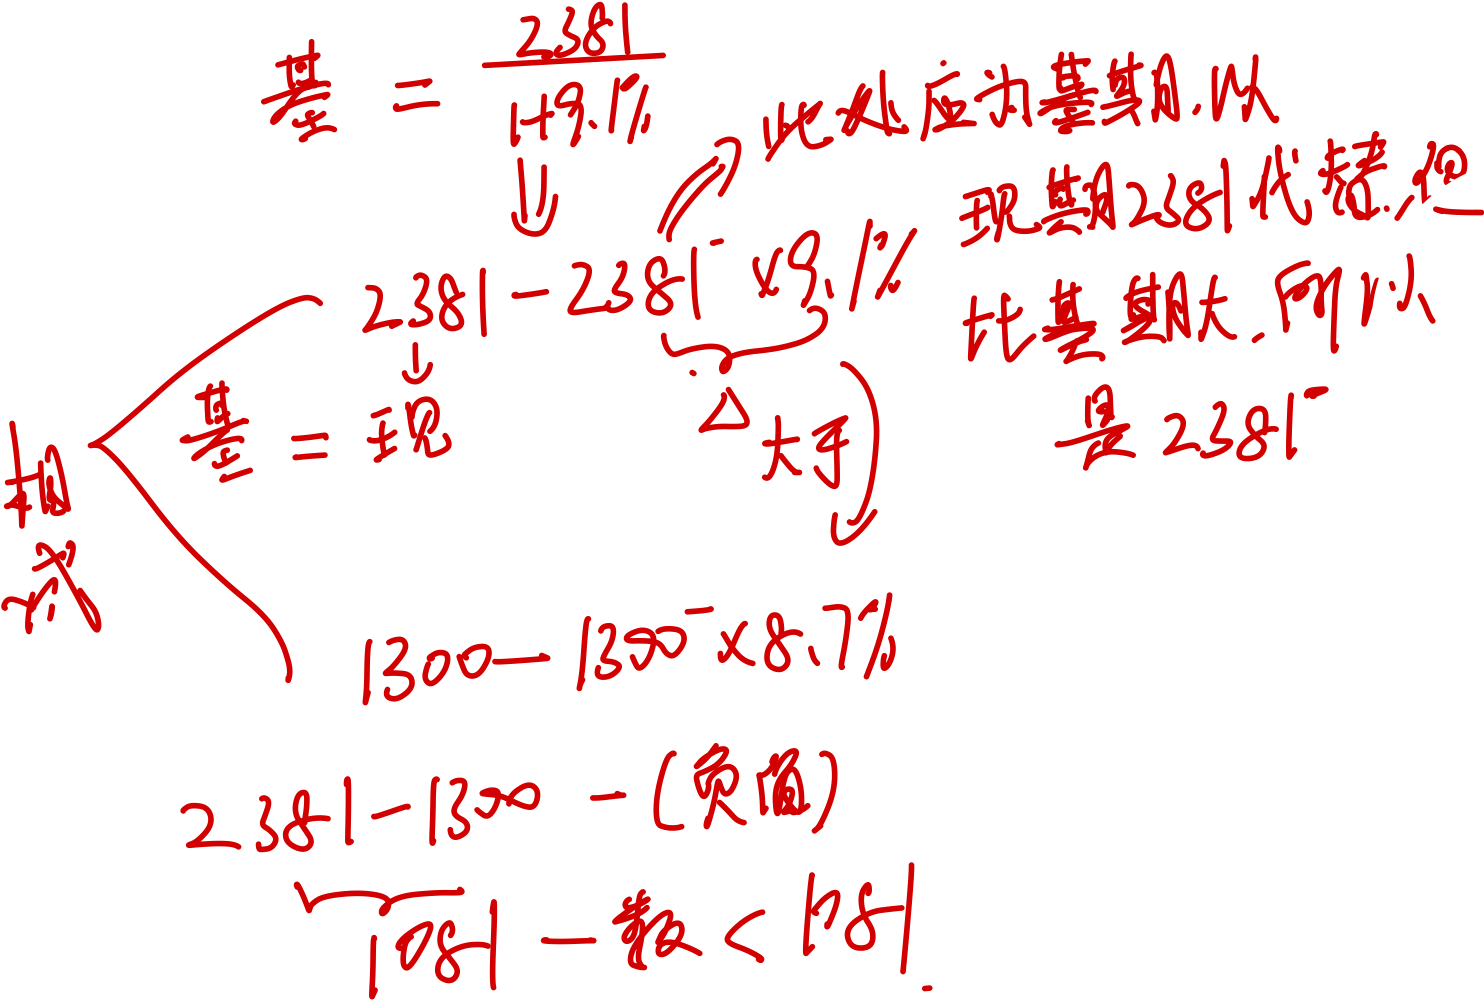 基 = 2381
1+9.1%
此处应为基期,以
现期2381代替,但
比基期大,所以
是2381⁻
2381 - 2381⁻ ×9.1%
基 = 现
△ 大于
相减
1300 - 1300⁻ ×8.7%
2381 - 1300 - (负值)
1081 - 数 < 1081